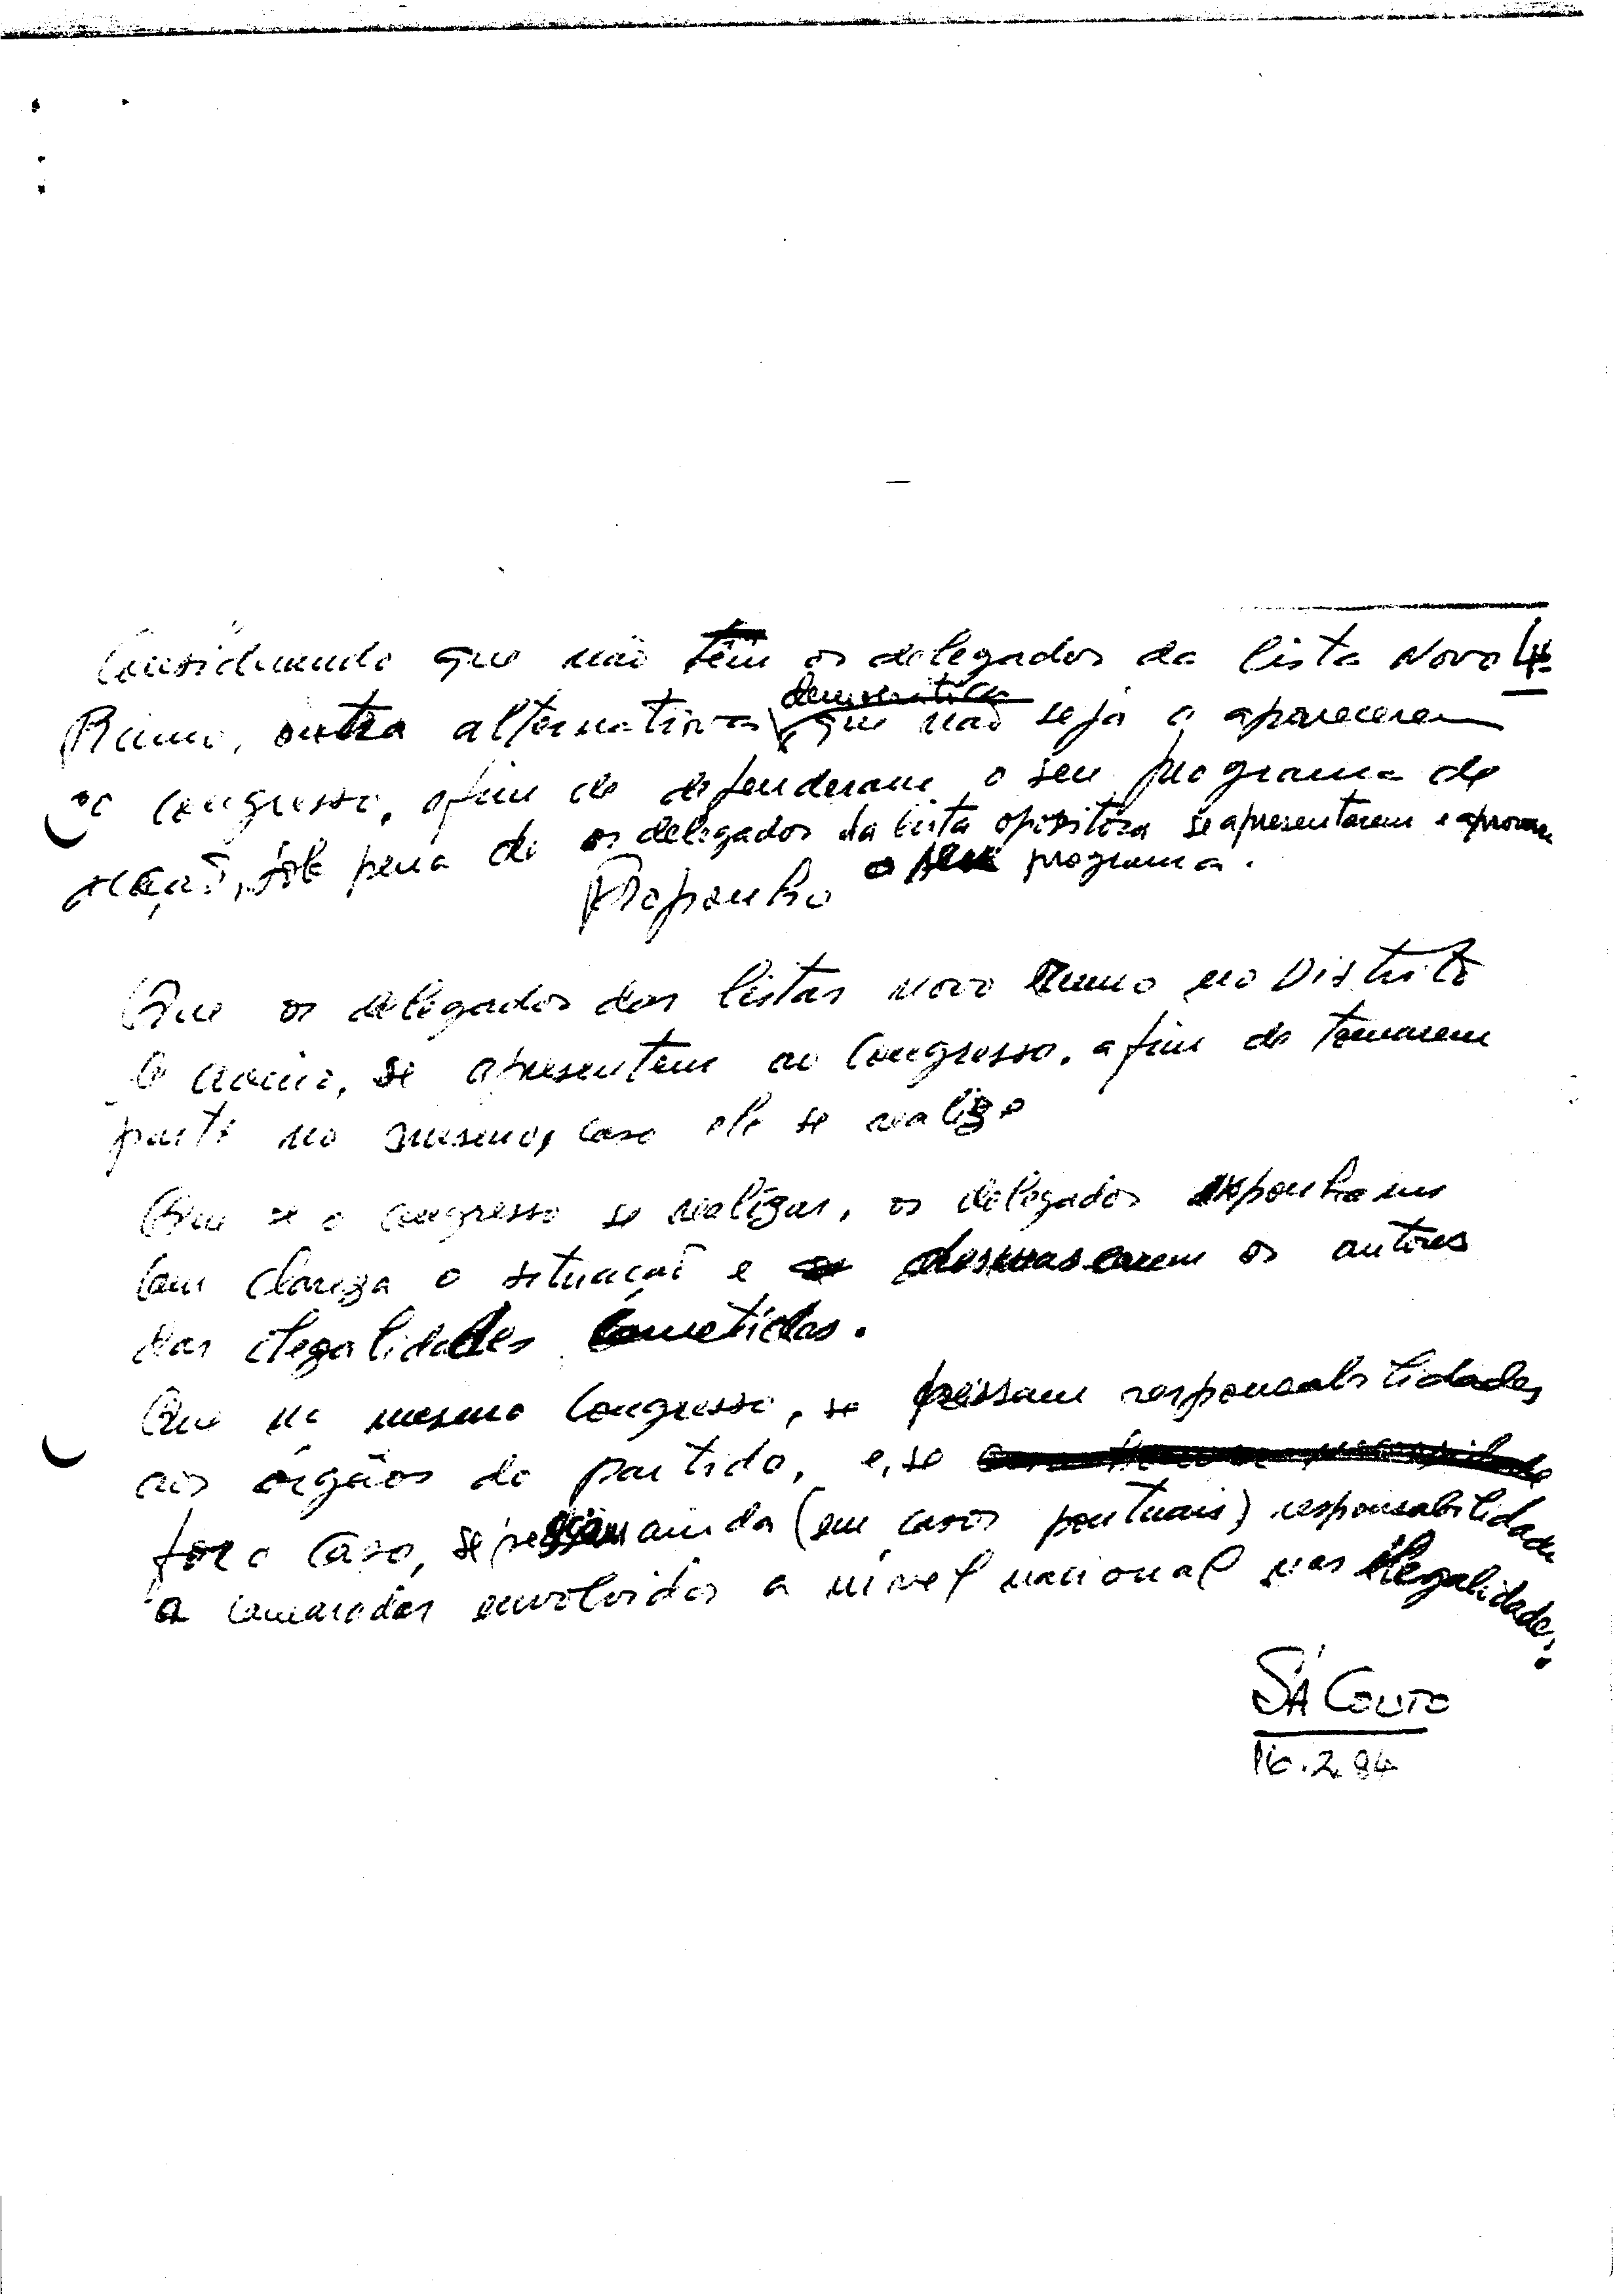 Considerando que não têm os delegados da lista Novo
Rumo, outra alternativa democrática que não seja o aparecerem
no congresso, afim de defenderem o seu programa de
acção, sob pena de os delegados da lista opositora se apresentarem e aprovarem
o seu programa.
Proponho
Que os delegados das listas novo Rumo no Distrito
se apresentem ao Congresso, afim de tomarem
parte no mesmo, caso ele se realize
Que se o congresso se realizar, os delegados exponham
com clareza a situação e desmascarem os autores
das ilegalidades cometidas.
Que no mesmo Congresso, se peçam responsabilidades
aos órgãos do partido, e, se
for o caso, se peçam ainda (em casos pontuais) responsabilidades
a camaradas envolvidos a nível nacional nas ilegalidades.
SÁ COUTO
16.2.84